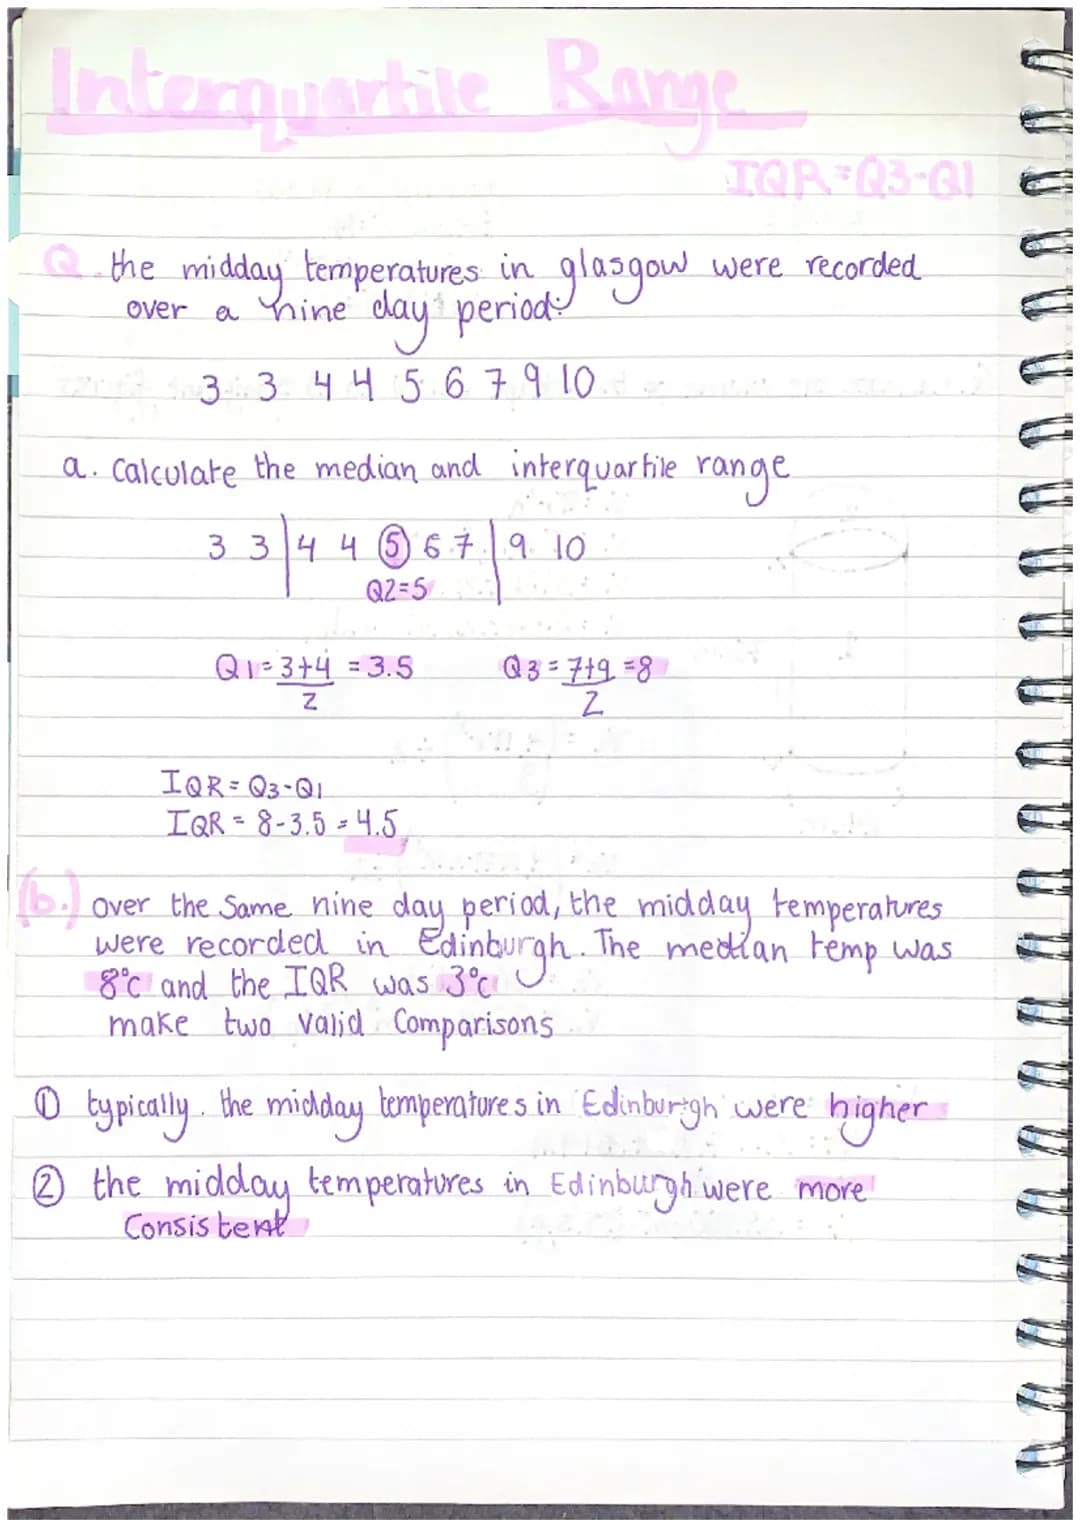 Interquartile Range
IQR=Q3-Q1
Q. the midday temperatures in glasgow were recorded
over a nine day period:
3 3 4 4 5 6 7 9 10
a. Calculate the median and interquartile range
3 3 | 4 4 5 6 7 | 9 10
Q2=5
Q1 = 3+4 = 3.5 Q3 = 7+9 = 8
2 2
IQR = Q3-Q1
IQR = 8-3.5 = 4.5
(b.) over the Same nine day period, the midday temperatures
were recorded in Edinburgh. The median temp was
8°c and the IQR was 3°c
make two valid Comparisons
① typically. the midday temperatures in Edinburgh were higher
② the midday temperatures in Edinburgh were more
Consistent